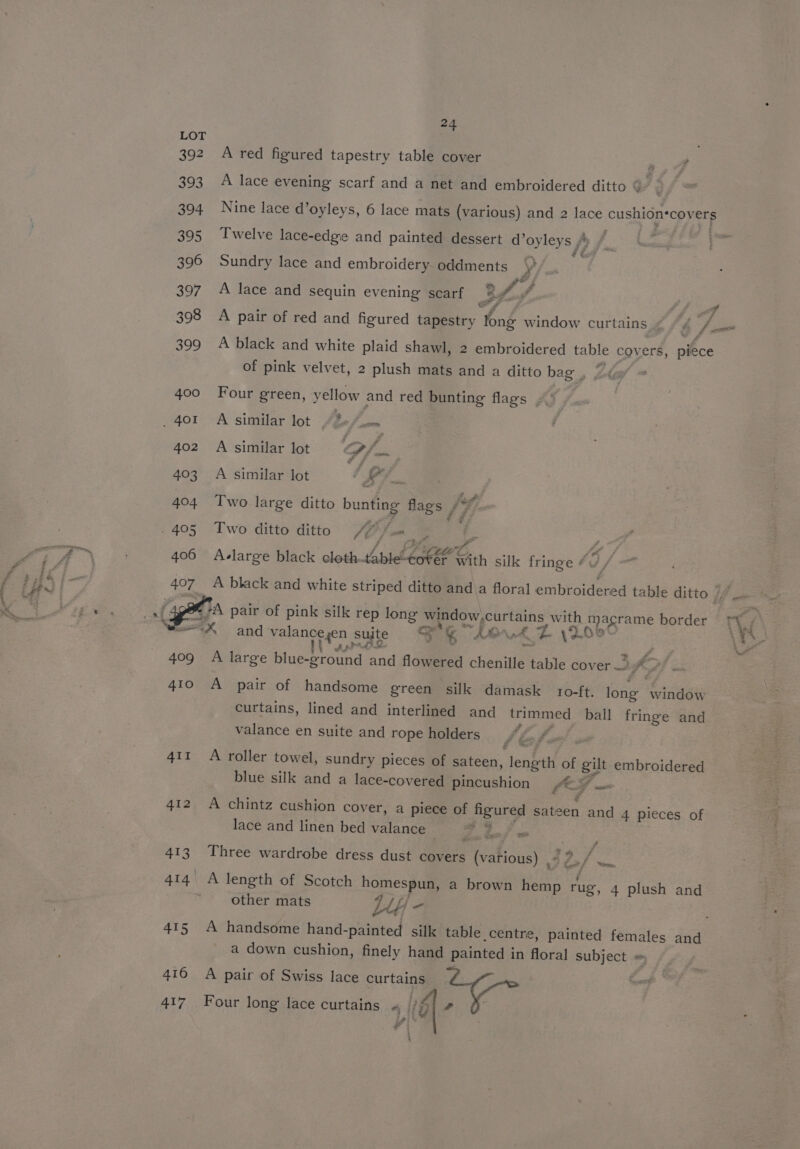 24
LOT
392 A red figured tapestry table cover
393 A lace evening scarf and a net and embroidered ditto
394 Nine lace d'oyleys, 6 lace mats (various) and 2 lace cushion-covers
395 Twelve lace-edge and painted dessert d'oyleys
396 Sundry lace and embroidery oddments
397 A lace and sequin evening scarf
398 A pair of red and figured tapestry long window curtains
399 A black and white plaid shawl, 2 embroidered table covers, piece
of pink velvet, 2 plush mats and a ditto bag
400 Four green, yellow and red bunting flags
401 A similar lot
402 A similar lot
403 A similar lot
404 Two large ditto bunting flags
405 Two ditto ditto
406 A large black cloth table cover with silk fringe
407 A black and white striped ditto and a floral embroidered table ditto
408 A pair of pink silk rep long window curtains with macrame border
and valance en suite
409 A large blue-ground and flowered chenille table cover
410 A pair of handsome green silk damask 10-ft. long window
curtains, lined and interlined and trimmed ball fringe and
valance en suite and rope holders
411 A roller towel, sundry pieces of sateen, length of gilt embroidered
blue silk and a lace-covered pincushion
412 A chintz cushion cover, a piece of figured sateen and 4 pieces of
lace and linen bed valance
413 Three wardrobe dress dust covers (various)
414 A length of Scotch homespun, a brown hemp rug, 4 plush and
other mats
415 A handsome hand-painted silk table centre, painted females and
a down cushion, finely hand painted in floral subject
416 A pair of Swiss lace curtains
417 Four long lace curtains